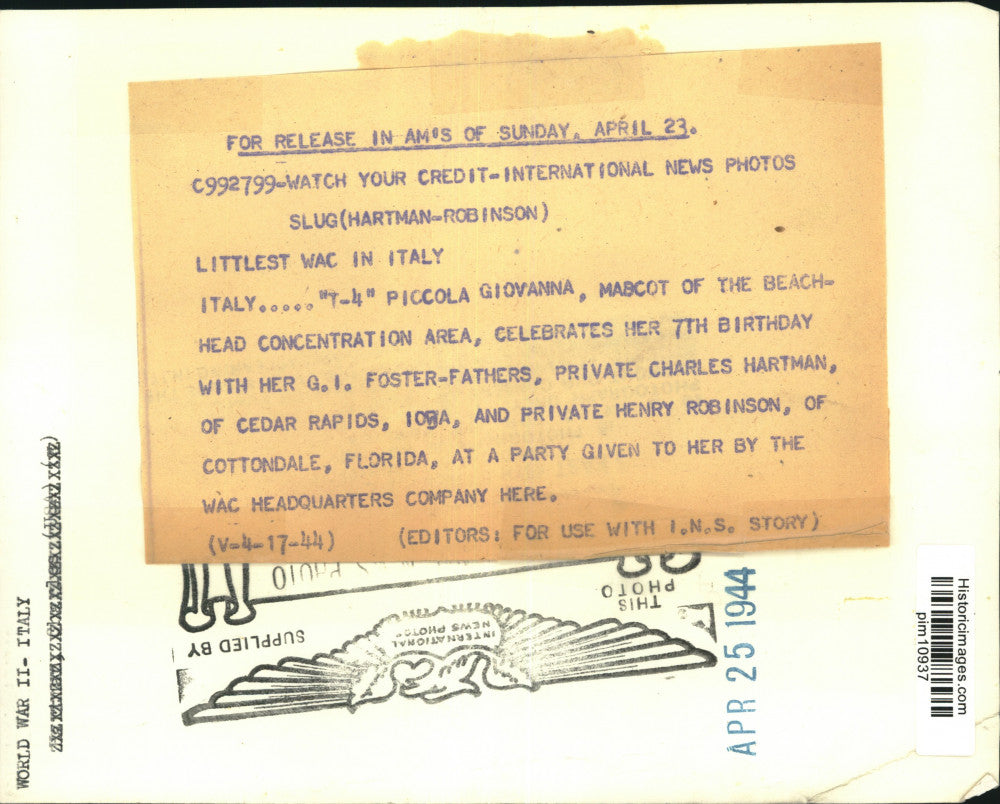 FOR RELEASE IN AM'S OF SUNDAY, APRIL 23.
C992799-WATCH YOUR CREDIT-INTERNATIONAL NEWS PHOTOS
SLUG(HARTMAN-ROBINSON)
LITTLEST WAC IN ITALY
ITALY....."T-4" PICCOLA GIOVANNA, MABCOT OF THE BEACH-
HEAD CONCENTRATION AREA, CELEBRATES HER 7TH BIRTHDAY
WITH HER G.I. FOSTER-FATHERS, PRIVATE CHARLES HARTMAN,
OF CEDAR RAPIDS, IOWA, AND PRIVATE HENRY ROBINSON, OF
COTTONDALE, FLORIDA, AT A PARTY GIVEN TO HER BY THE
WAC HEADQUARTERS COMPANY HERE.
(V-4-17-44) (EDITORS: FOR USE WITH I.N.S. STORY)
THIS
PHOTO
SUPPLIED BY
INTERNATIONAL
NEWS PHOTOS
APR 25 1944
WORLD WAR II- ITALY
Historicimages.com
plm10937